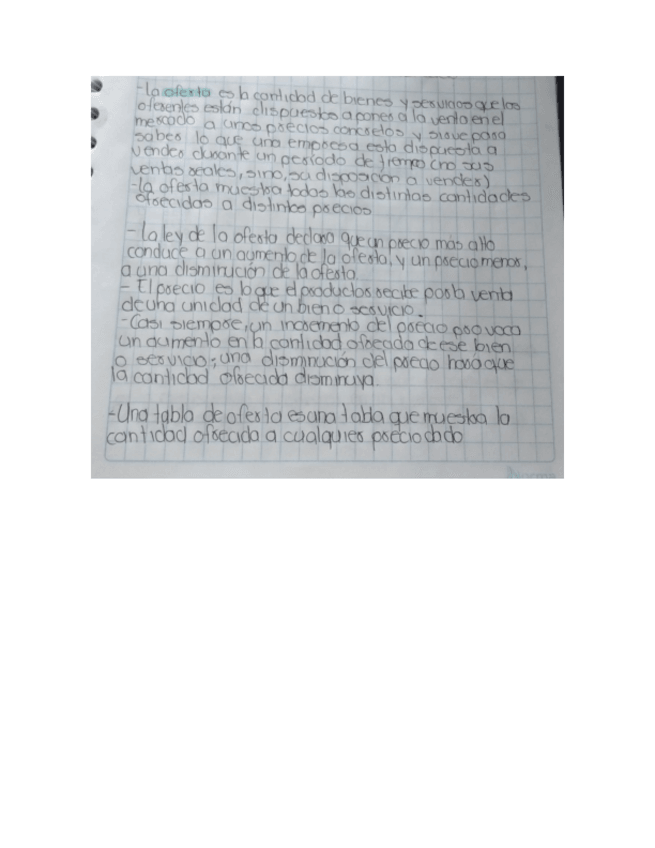 -La oferta es la cantidad de bienes y servicios que los
oferentes están dispuestos a poner a la venta en el
mercado a unos precios concretos y sirve para
saber lo que una empresa esta dispuesta a
vender durante un periodo de tiempo (no sus
ventas reales, sino, su disposición a vender)
-la oferta muestra todas las distintas cantidades
ofrecidas a distintos precios
- La ley de la oferta declara que un precio más alto
conduce a un aumento de la oferta, y un precio menor,
a una disminución de la oferta
- El precio es lo que el productor recibe por la venta
de una unidad de un bien o servicio.
-Casi siempre, un incremento del precio provoca
un aumento en la cantidad ofrecida de ese bien
o servicio; una disminución del precio hará que
la cantidad ofrecida disminuya.
-Una tabla de oferta es una tabla que muestra la
cantidad ofrecida a cualquier precio dado